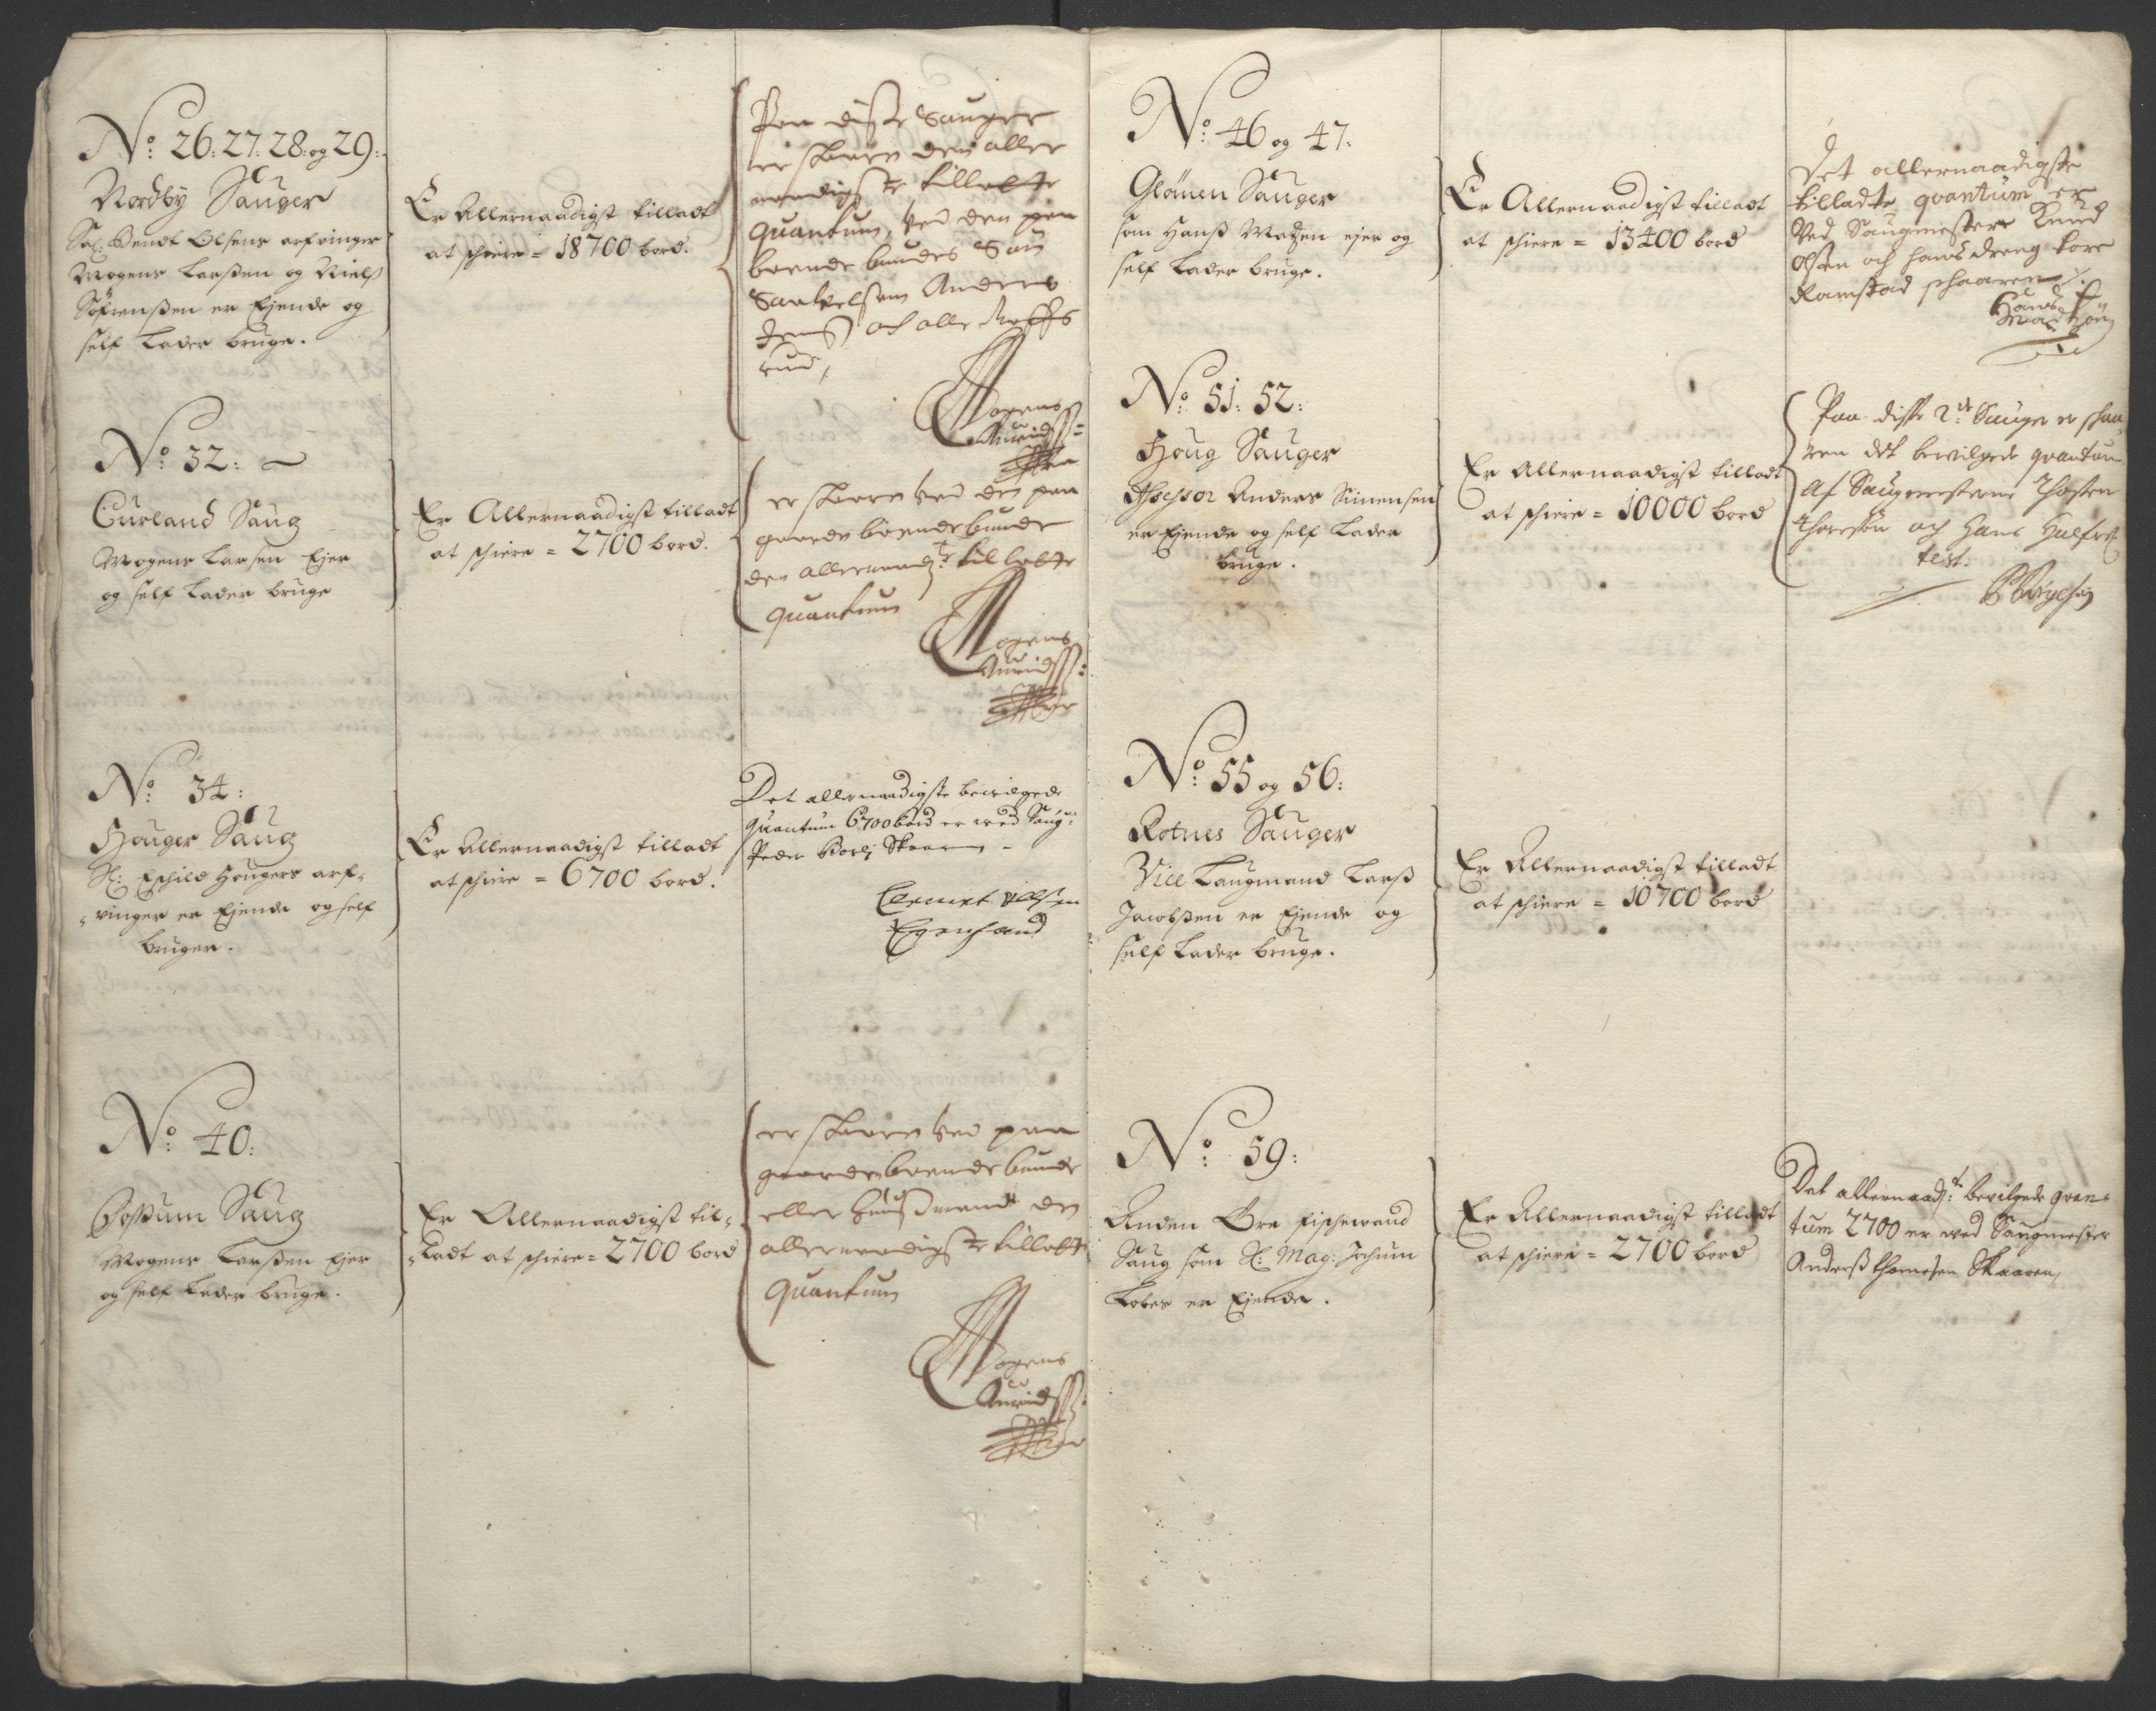 No: 26: 27: 28: og 29:
Nordby Sauger
Sal: Bendt Olsens arfvinger
Mogens Larsen og Niels
Søfrensen er Ejende og
self Lader bruge.
Er Allernaadigst tilladt
at schiere = 18700 bord.
Paa disse Sauger
er skaaren den aller
naadigste tillatte
quantum, ved den paa
boende bunde
Anders
och
rud,
Mogens
No: 32:
Curland Saug
Mogens Larsen Ejer
og self Lader bruge
Er Allernaadigst tilladt
at schiere = 2700 bord.
er skaaren ved den paa
gaarden boende bunde
den allernaadigste tillatte
quantum
Mogens
No: 34:
Houger Saug
Sl: Eschild Hougers arf-
vinger er Ejende og self
bruger.
Er Allernaadigst tilladt
at schiere = 6700 bord.
Det allernaadigste bevilgede
quantum 6700 bord er ved Saug:
Peder Skaaren -
Egenhaand
No: 40:
Fossum Saug
Mogens Larsen Ejer
og self Lader bruge.
Er Allernaadigst til-
Ladt at schiere = 2700 bord
er skaaren ved paa
gaarden boende bunde
eller huusmand den
allernaadigste tillatte
quantum
Mogens
No: 46 og 47:
Glömen Sauger
som Hanss Madzen ejer og
self Lader bruge.
Er Allernaadigst tilladt
at schiere = 13400 bord
Det allernaadigste
tilladte qvantum er
Ved Saugmester Knud
Olsen och hans dreng Tore
Ramstad schaaren
Hans
No: 51: 52:
Houg Sauger
Assessor Anders Simensen
er Ejende og self Lader
bruge.
Er Allernaadigst tilladt
at schiere = 10000 bord
Paa disse 2de Sauge er skaa-
ren det bevilgede qvantum
Af Saugmesterne Thosten
Thoresön och Hans
test:
No: 55 og 56:
Rotnes Sauger
Vice Laugmand Larss
Jacobsen er Ejende og
self Lader bruge.
Er Allernaadigst tilladt
at schiere = 10700 bord
No: 59:
Anden Øre fischewand
Saug som Sl: Mag: Jochum
er Ejende.
Er Allernaadigst tilladt
at schiere = 2700 bord
Det allernaads:t bevilgede qvan-
tum 2700 er ved Saugmester
Anderss Thomesen Skaaren,